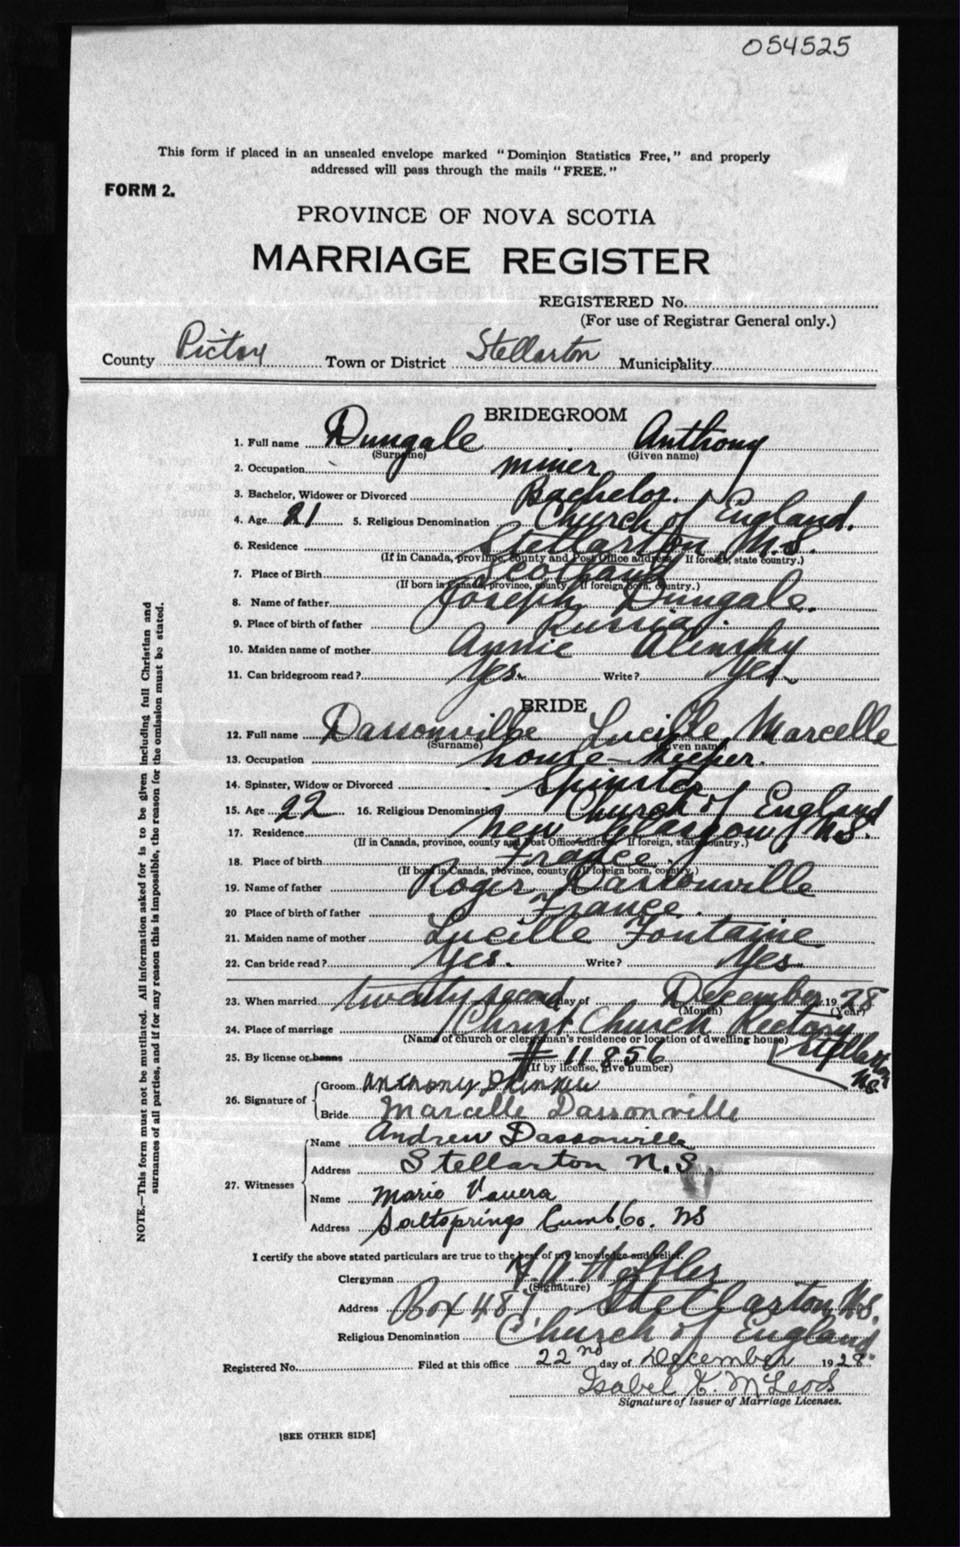 054525
This form if placed in an unsealed envelope marked "Dominion Statistics Free," and properly
addressed will pass through the mails "FREE."
FORM 2.
PROVINCE OF NOVA SCOTIA
MARRIAGE REGISTER
REGISTERED No.
(For use of Registrar General only.)
County Pictou Town or District Stellarton Municipality
BRIDEGROOM
1. Full name Dungale Anthony
(Surname) (Given name)
2. Occupation miner
3. Bachelor, Widower or Divorced Bachelor.
4. Age 21 5. Religious Denomination Church of England.
6. Residence Stellarton N.S.
(If in Canada, province, county and Post Office address. If foreign, state country.)
7. Place of Birth Scotland
(If born in Canada, province, county. If foreign born, country.)
8. Name of father Joseph Dungale.
9. Place of birth of father Russia.
10. Maiden name of mother Annie
11. Can bridegroom read? Yes. Write? Yes.
BRIDE
12. Full name Dassonville Lucille Marcelle
(Surname) (Given name)
13. Occupation house-keeper.
14. Spinster, Widow or Divorced Spinster
15. Age 22 16. Religious Denomination Church of England
17. Residence New Glasgow N.S.
(If in Canada, province, county and Post Office address. If foreign, state country.)
18. Place of birth France.
(If born in Canada, province, county. If foreign born, country.)
19. Name of father Roger Dassonville
20 Place of birth of father France.
21. Maiden name of mother Lucille Fontaine
22. Can bride read? Yes. Write? Yes.
23. When married twenty second day of December 1928
(Month) (Year)
24. Place of marriage Christ Church Rectory
(Name of church or clergyman's residence or location of dwelling house) Stellarton
N.S.
25. By license or banns # 11856
(If by license, give number)
26. Signature of Groom Anthoney
Bride Marcelle Dassonville
27. Witnesses Name Andrew Dassonville
Address Stellarton N.S.
Name Mario
Address Saltsprings Cumb. Co. NS
I certify the above stated particulars are true to the best of my knowledge and belief.
Clergyman
(Signature)
Address Box 487 Stellarton, N.S.
Religious Denomination Church of England.
Registered No. Filed at this office 22nd day of December 1928.
Isabel K. McLeod
Signature of Issuer of Marriage Licenses.
[SEE OTHER SIDE]
NOTE.—This form must not be mutilated. All information asked for is to be given including full Christian and
surnames of all parties, and if for any reason this is impossible, the reason for the omission must be stated.